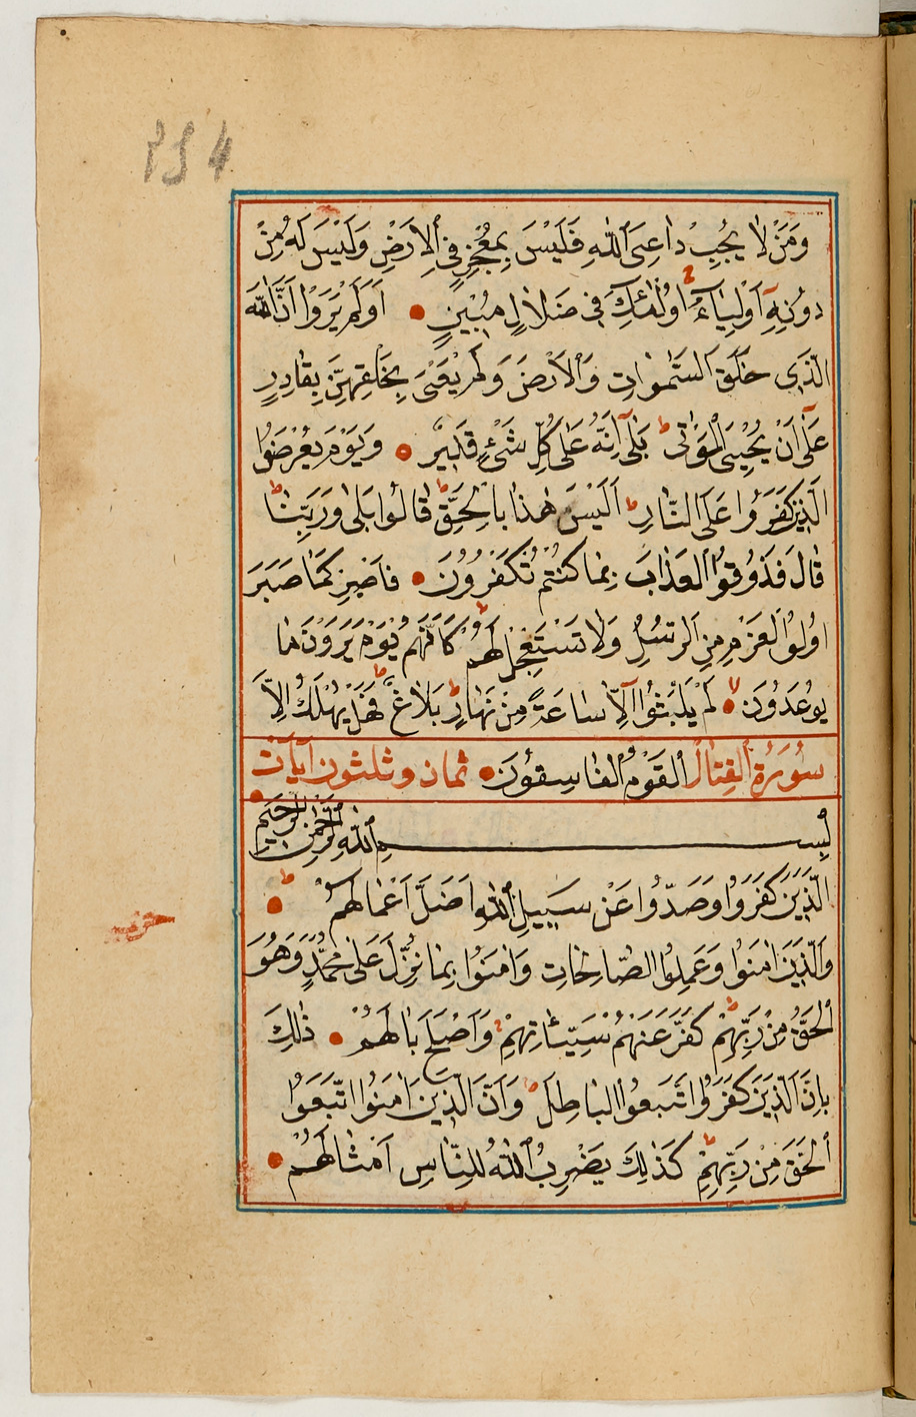 ٢٥٤
وَمَنْ لَا يُجِبْ دَاعِيَ اللّٰهِ فَلَيْسَ بِمُعْجِزٍ فِي الْاَرْضِ وَلَيْسَ لَهُ مِنْ
دُونِهِ اَوْلِيَاءُ اُولٰئِكَ فِي ضَلَالٍ مُبِينٍ اَوَلَمْ يَرَوْا اَنَّ اللّٰهَ
الَّذِي خَلَقَ السَّمٰوَاتِ وَالْاَرْضَ وَلَمْ يَعْيَ بِخَلْقِهِنَّ بِقَادِرٍ
عَلٰى اَنْ يُحْيِيَ الْمَوْتٰى بَلٰى اِنَّهُ عَلٰى كُلِّ شَيْءٍ قَدِيرٌ وَيَوْمَ يُعْرَضُ
الَّذِينَ كَفَرُوا عَلَى النَّارِ اَلَيْسَ هٰذَا بِالْحَقِّ قَالُوا بَلٰى وَرَبِّنَا
قَالَ فَذُوقُوا الْعَذَابَ بِمَا كُنْتُمْ تَكْفُرُونَ فَاصْبِرْ كَمَا صَبَرَ
اُولُوا الْعَزْمِ مِنَ الرُّسُلِ وَلَا تَسْتَعْجِلْ لَهُمْ كَاَنَّهُمْ يَوْمَ يَرَوْنَ مَا
يُوعَدُونَ لَمْ يَلْبَثُوا اِلَّا سَاعَةً مِنْ نَهَارٍ بَلَاغٌ فَهَلْ يُهْلَكُ اِلَّا
سُورَةُ الْقِتَالِ الْقَوْمُ الْفَاسِقُونَ ثمان وثلثون آيات
بِسْمِ اللّٰهِ الرَّحْمٰنِ الرَّحِيمِ
الَّذِينَ كَفَرُوا وَصَدُّوا عَنْ سَبِيلِ اللّٰهِ اَضَلَّ اَعْمَالَهُمْ
وَالَّذِينَ اٰمَنُوا وَعَمِلُوا الصَّالِحَاتِ وَاٰمَنُوا بِمَا نُزِّلَ عَلٰى مُحَمَّدٍ وَهُوَ
الْحَقُّ مِنْ رَبِّهِمْ كَفَّرَ عَنْهُمْ سَيِّئَاتِهِمْ وَاَصْلَحَ بَالَهُمْ ذٰلِكَ
بِاَنَّ الَّذِينَ كَفَرُوا اتَّبَعُوا الْبَاطِلَ وَاَنَّ الَّذِينَ اٰمَنُوا اتَّبَعُوا
الْحَقَّ مِنْ رَبِّهِمْ كَذٰلِكَ يَضْرِبُ اللّٰهُ لِلنَّاسِ اَمْثَالَهُمْ